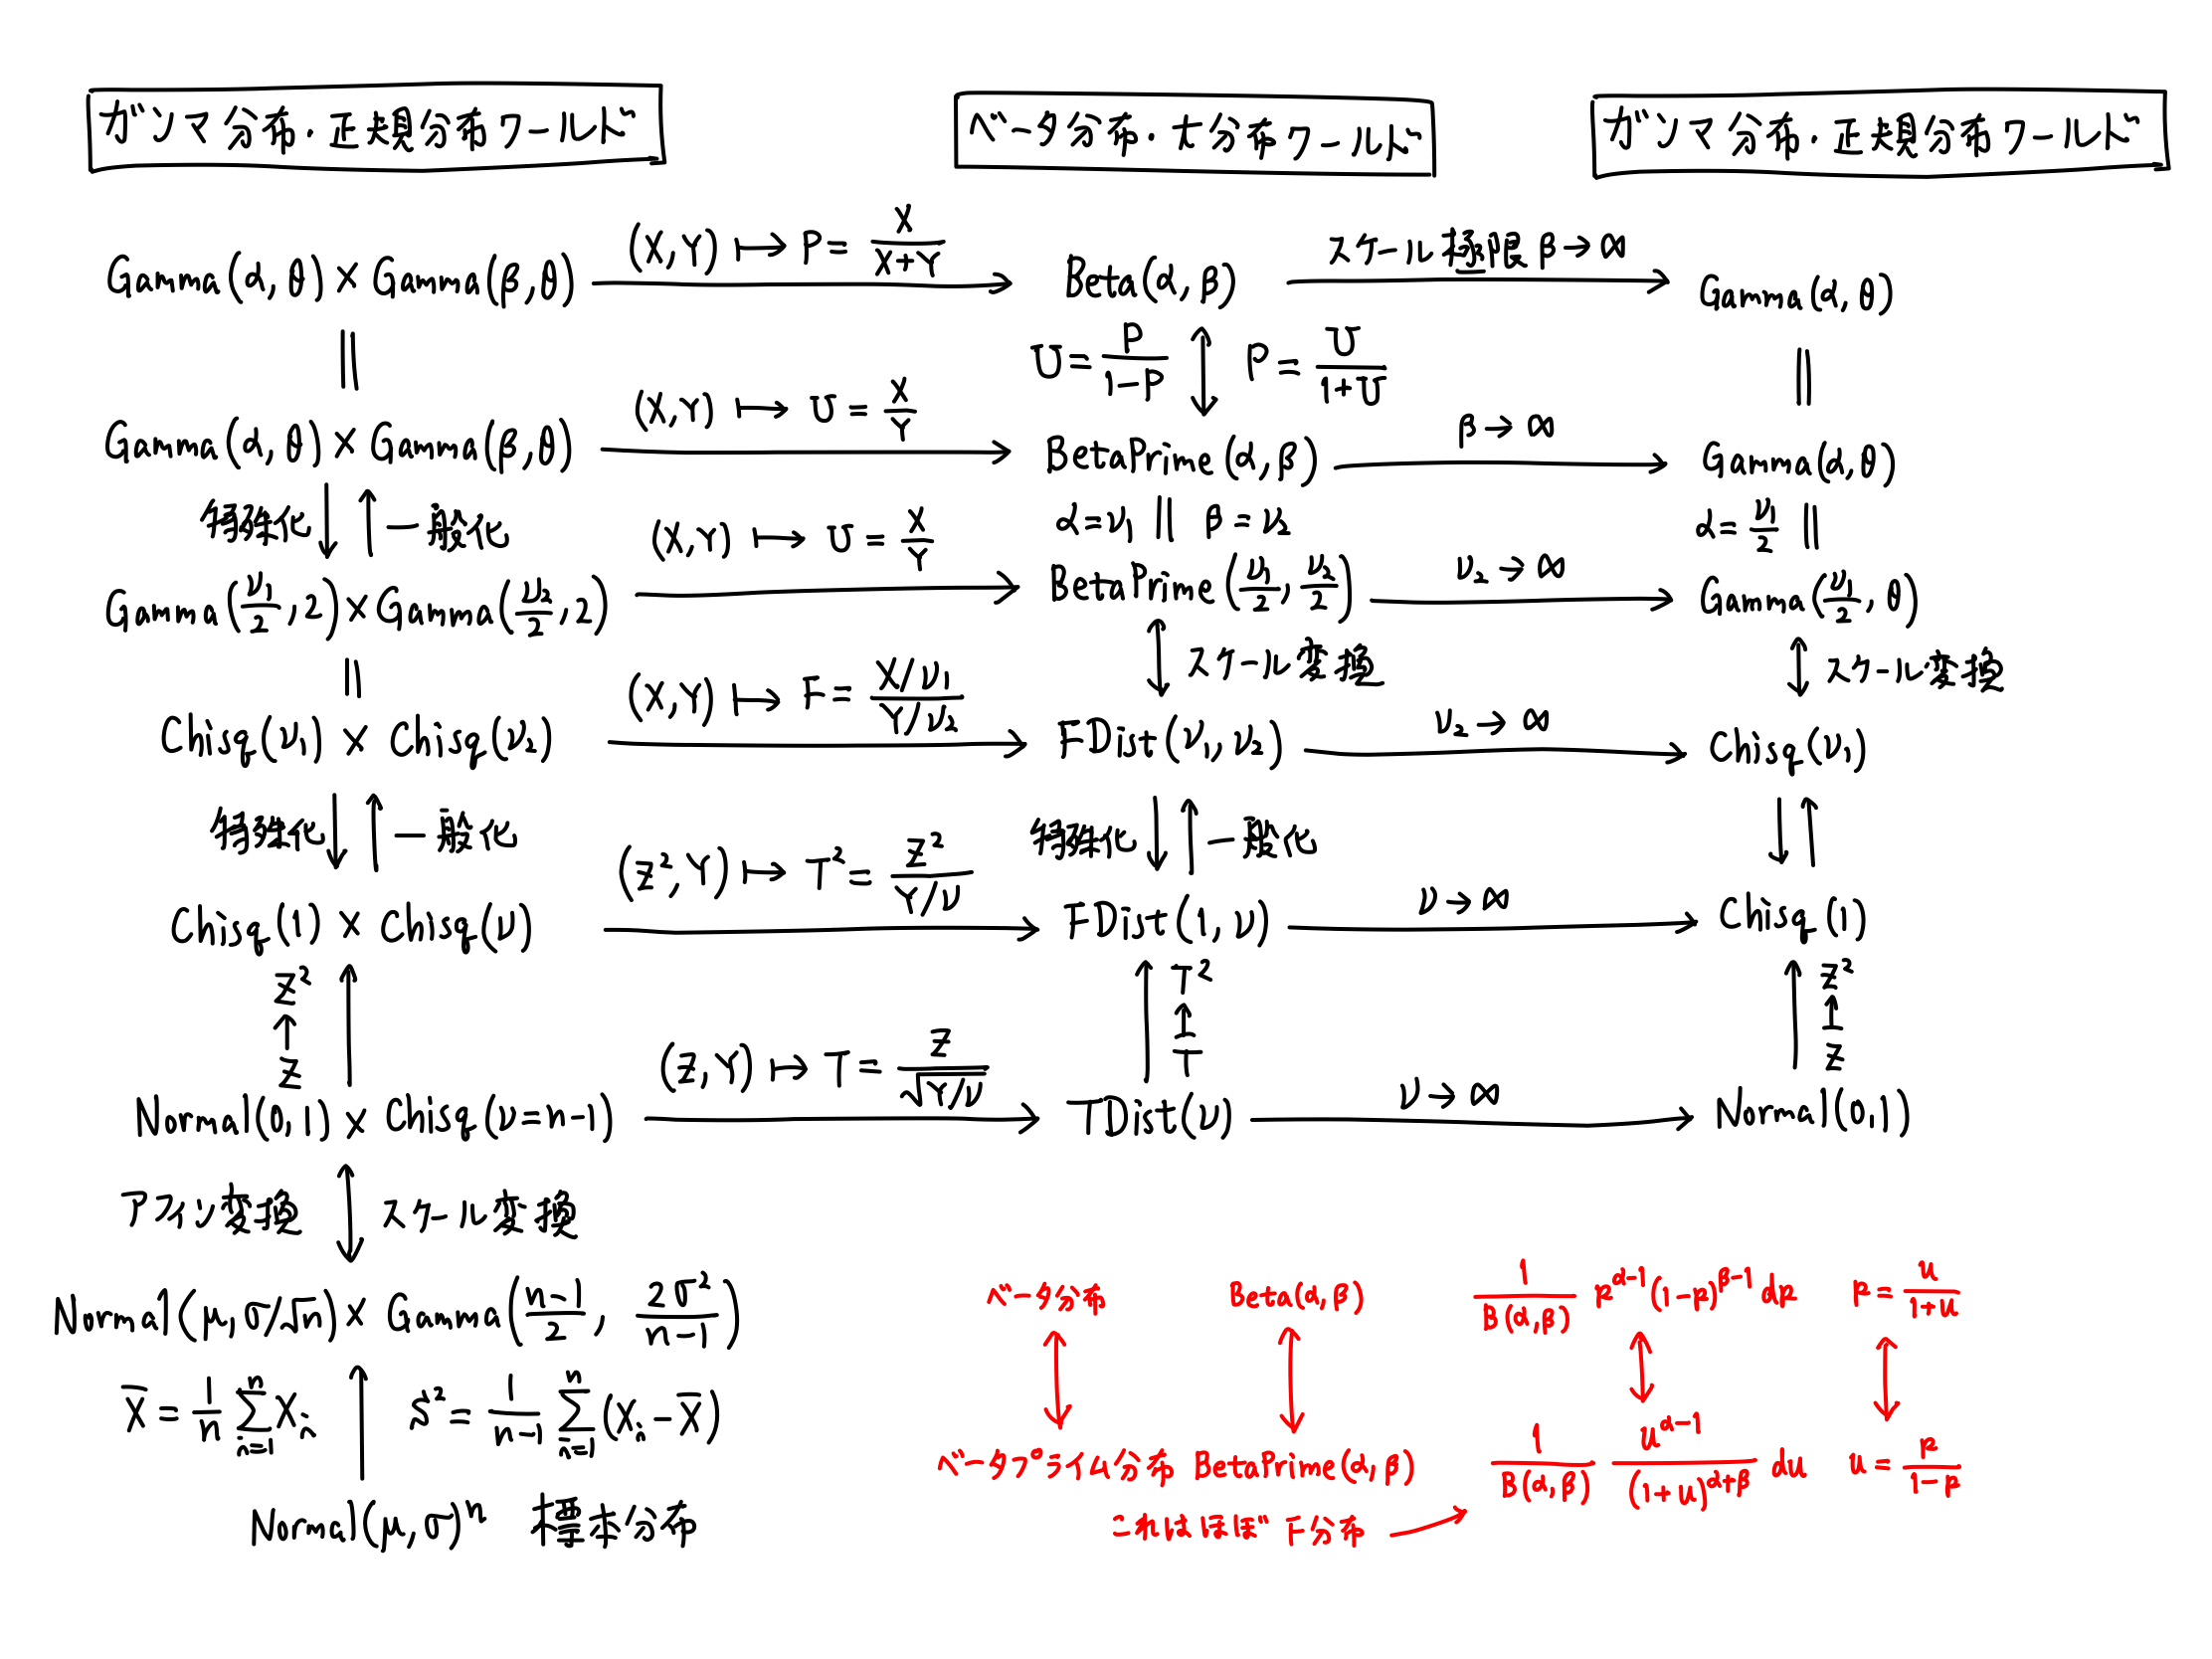 ガンマ分布・正規分布ワールド ベータ分布・t分布ワールド ガンマ分布・正規分布ワールド
Gamma(α, θ) × Gamma(β, θ) (X, Y) ↦ P = X/(X+Y) Beta(α, β) スケール極限 β → ∞ Gamma(α, θ)
|| U = P/(1-P) ↕ P = U/(1+U) ||
Gamma(α, θ) × Gamma(β, θ) (X, Y) ↦ U = X/Y BetaPrime(α, β) β → ∞ Gamma(α, θ)
特殊化 ↓ ↑ 一般化 α = ν₁ || β = ν₂ α = ν₁/2 ||
Gamma(ν₁/2, 2) × Gamma(ν₂/2, 2) (X, Y) ↦ U = X/Y BetaPrime(ν₁/2, ν₂/2) ν₂ → ∞ Gamma(ν₁/2, θ)
|| ↕ スケール変換 ↕ スケール変換
Chisq(ν₁) × Chisq(ν₂) (X, Y) ↦ F = (X/ν₁)/(Y/ν₂) FDist(ν₁, ν₂) ν₂ → ∞ Chisq(ν₁)
特殊化 ↓ ↑ 一般化 特殊化 ↓ ↑ 一般化 ↓ ↑
Chisq(1) × Chisq(ν) (Z², Y) ↦ T² = Z²/(Y/ν) FDist(1, ν) ν → ∞ Chisq(1)
Z² ↑ T² Z²
↑ ↑ ↑
Z T Z
Normal(0, 1) × Chisq(ν = n-1) (Z, Y) ↦ T = Z/√(Y/ν) TDist(ν) ν → ∞ Normal(0, 1)
アフィン変換 ↕ スケール変換
Normal(μ, σ/√n) × Gamma((n-1)/2, 2σ²/(n-1))
X̄ = 1/n Σ_{i=1}^{n} X_i ↑ S² = 1/(n-1) Σ_{i=1}^{n} (X_i - X̄)
Normal(μ, σ)ⁿ 標本分布
ベータ分布 Beta(α, β) 1/B(α, β) p^{α-1} (1-p)^{β-1} dp p = u/(1+u)
↕ ↕ ↕ ↕
ベータプライム分布 BetaPrime(α, β) 1/B(α, β) u^{α-1}/(1+u)^{α+β} du u = p/(1-p)
これはほぼF分布 →